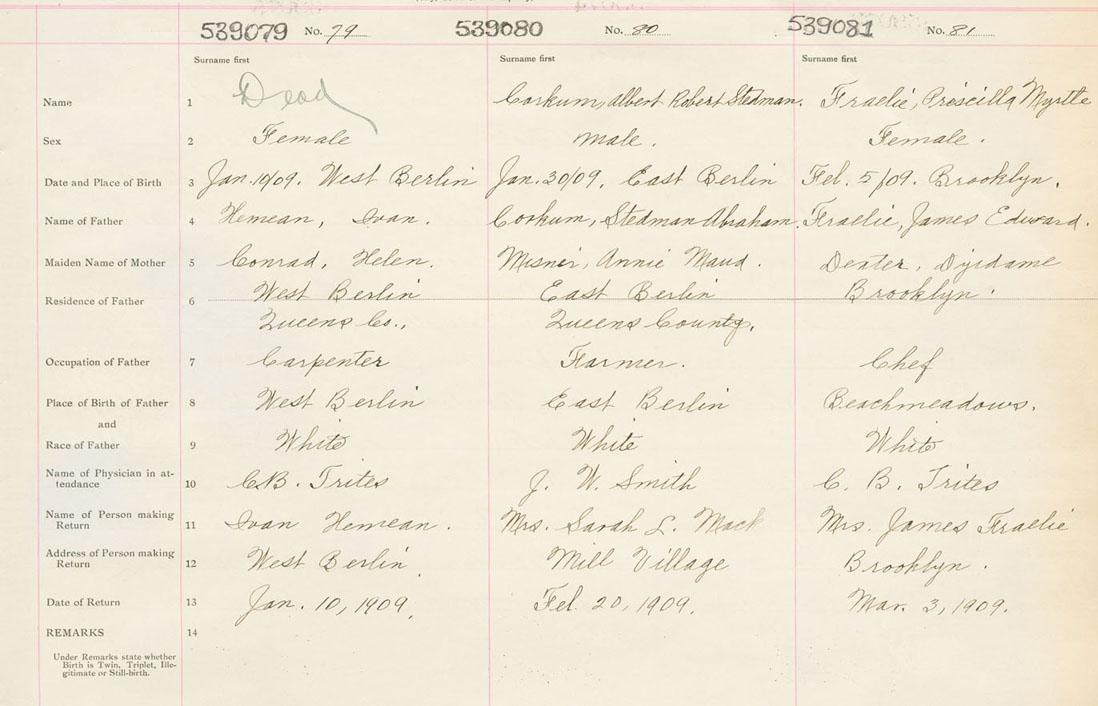 539079 No. 79 539080 No. 80 539081 No. 81
Surname first Surname first Surname first
Name 1 Dead Corkum, Albert Robert Stedman. Fraelic, Priscilla Myrtle
Sex 2 Female Male. Female.
Date and Place of Birth 3 Jan. 10/09. West Berlin Jan. 30/09, East Berlin Feb. 5/09. Brooklyn.
Name of Father 4 Hemean, Ivan. Corkum, Stedman Abraham. Fraelic, James Edward.
Maiden Name of Mother 5 Conrad, Helen. Misner, Annie Maud. Dexter,
Residence of Father 6 West Berlin East Berlin Brooklyn.
Queens Co., Queens County,
Occupation of Father 7 Carpenter Farmer. Chef
Place of Birth of Father 8 West Berlin East Berlin Beachmeadows.
and
Race of Father 9 White White White
Name of Physician in at-
tendance 10 C.B. Trites J. W. Smith C. B. Trites
Name of Person making
Return 11 Ivan Hemean. Mrs. Sarah L. Mack Mrs. James Fraelic
Address of Person making
Return 12 West Berlin Mill Village Brooklyn.
Date of Return 13 Jan. 10, 1909. Feb. 20, 1909. Mar. 3, 1909.
REMARKS 14
Under Remarks state whether
Birth is Twin, Triplet, Ille-
gitimate or Still-birth.